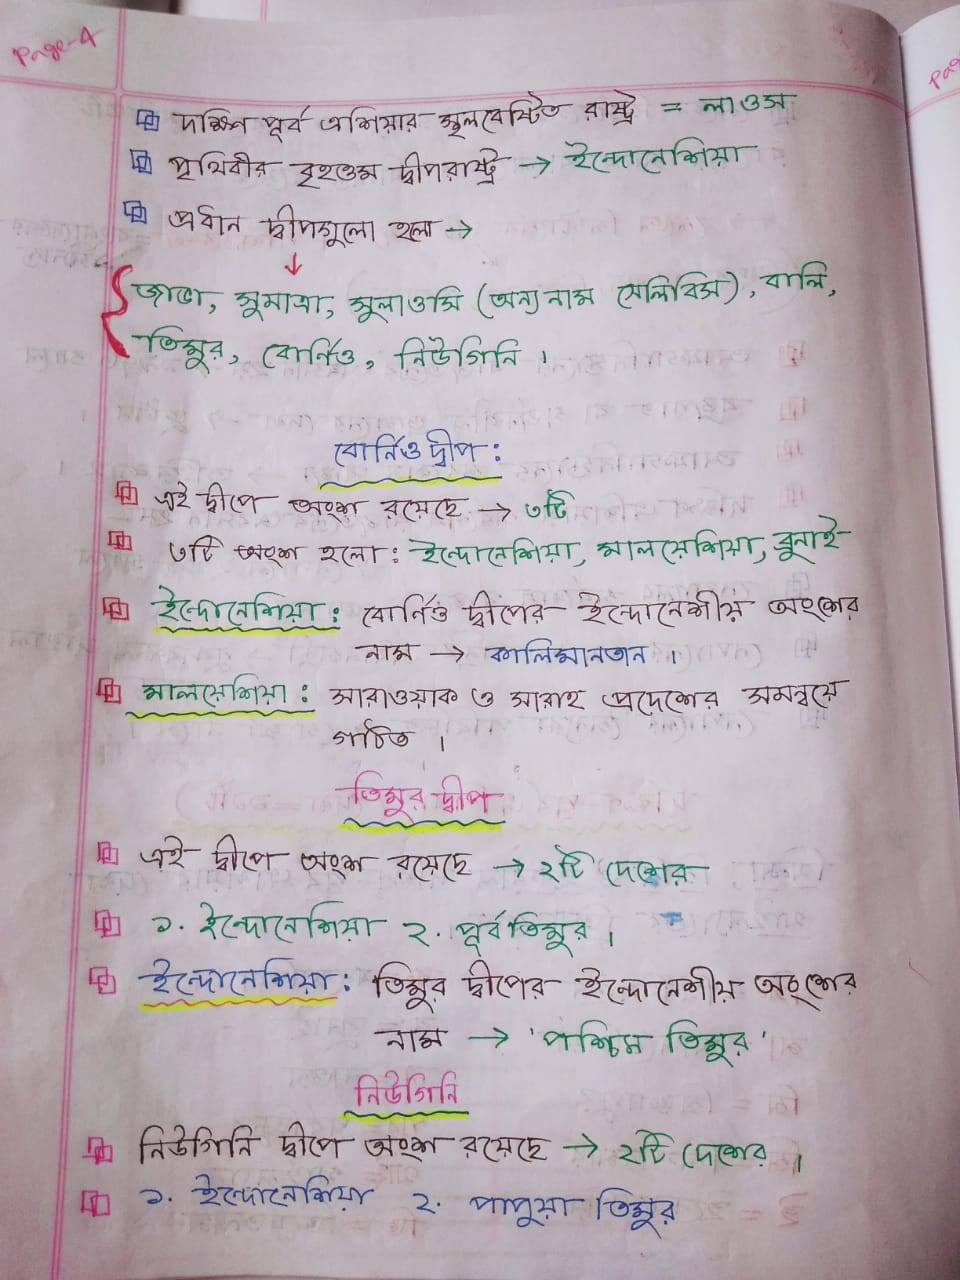 Page-4
দক্ষিণ পূর্ব এশিয়ার স্থলবেষ্টিত রাষ্ট্র = লাওস
পৃথিবীর বৃহত্তম দ্বীপরাষ্ট্র → ইন্দোনেশিয়া
প্রধান দ্বীপগুলো হলো →
জাভা, সুমাত্রা, সুলাওসি (অন্য নাম সেলিবিস), বালি,
তিমুর, বোর্নিও, নিউগিনি ।
বোর্নিও দ্বীপ :
এই দ্বীপে অংশ রয়েছে → ৩টি
৩টি অংশ হলো : ইন্দোনেশিয়া, মালয়েশিয়া, ব্রুনাই
ইন্দোনেশিয়া : বোর্নিও দ্বীপের ইন্দোনেশীয় অংশের
নাম → কালিমানতান ।
মালয়েশিয়া : সারাওয়াক ও সাবাহ প্রদেশের সমন্বয়ে
গঠিত ।
তিমুর দ্বীপ
এই দ্বীপে অংশ রয়েছে → ২টি দেশের
১. ইন্দোনেশিয়া ২. পূর্ব তিমুর ।
ইন্দোনেশিয়া : তিমুর দ্বীপের ইন্দোনেশীয় অংশের
নাম → 'পশ্চিম তিমুর'
নিউগিনি
নিউগিনি দ্বীপে অংশ রয়েছে → ২টি দেশের ।
১. ইন্দোনেশিয়া ২. পাপুয়া তিমুর